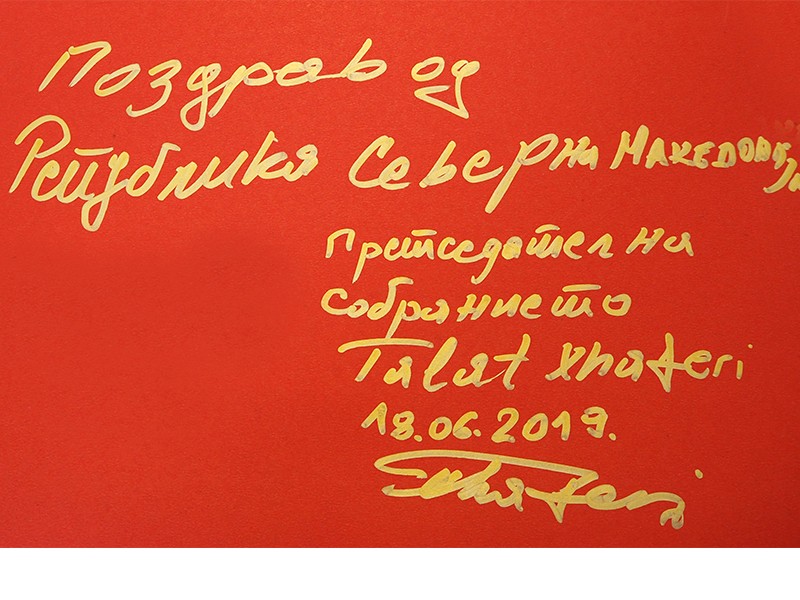 Поздрав од
Република Северна Македонија
Претседател на
собранието
Talat Xhaferi
18.06.2019.
Xhaferi